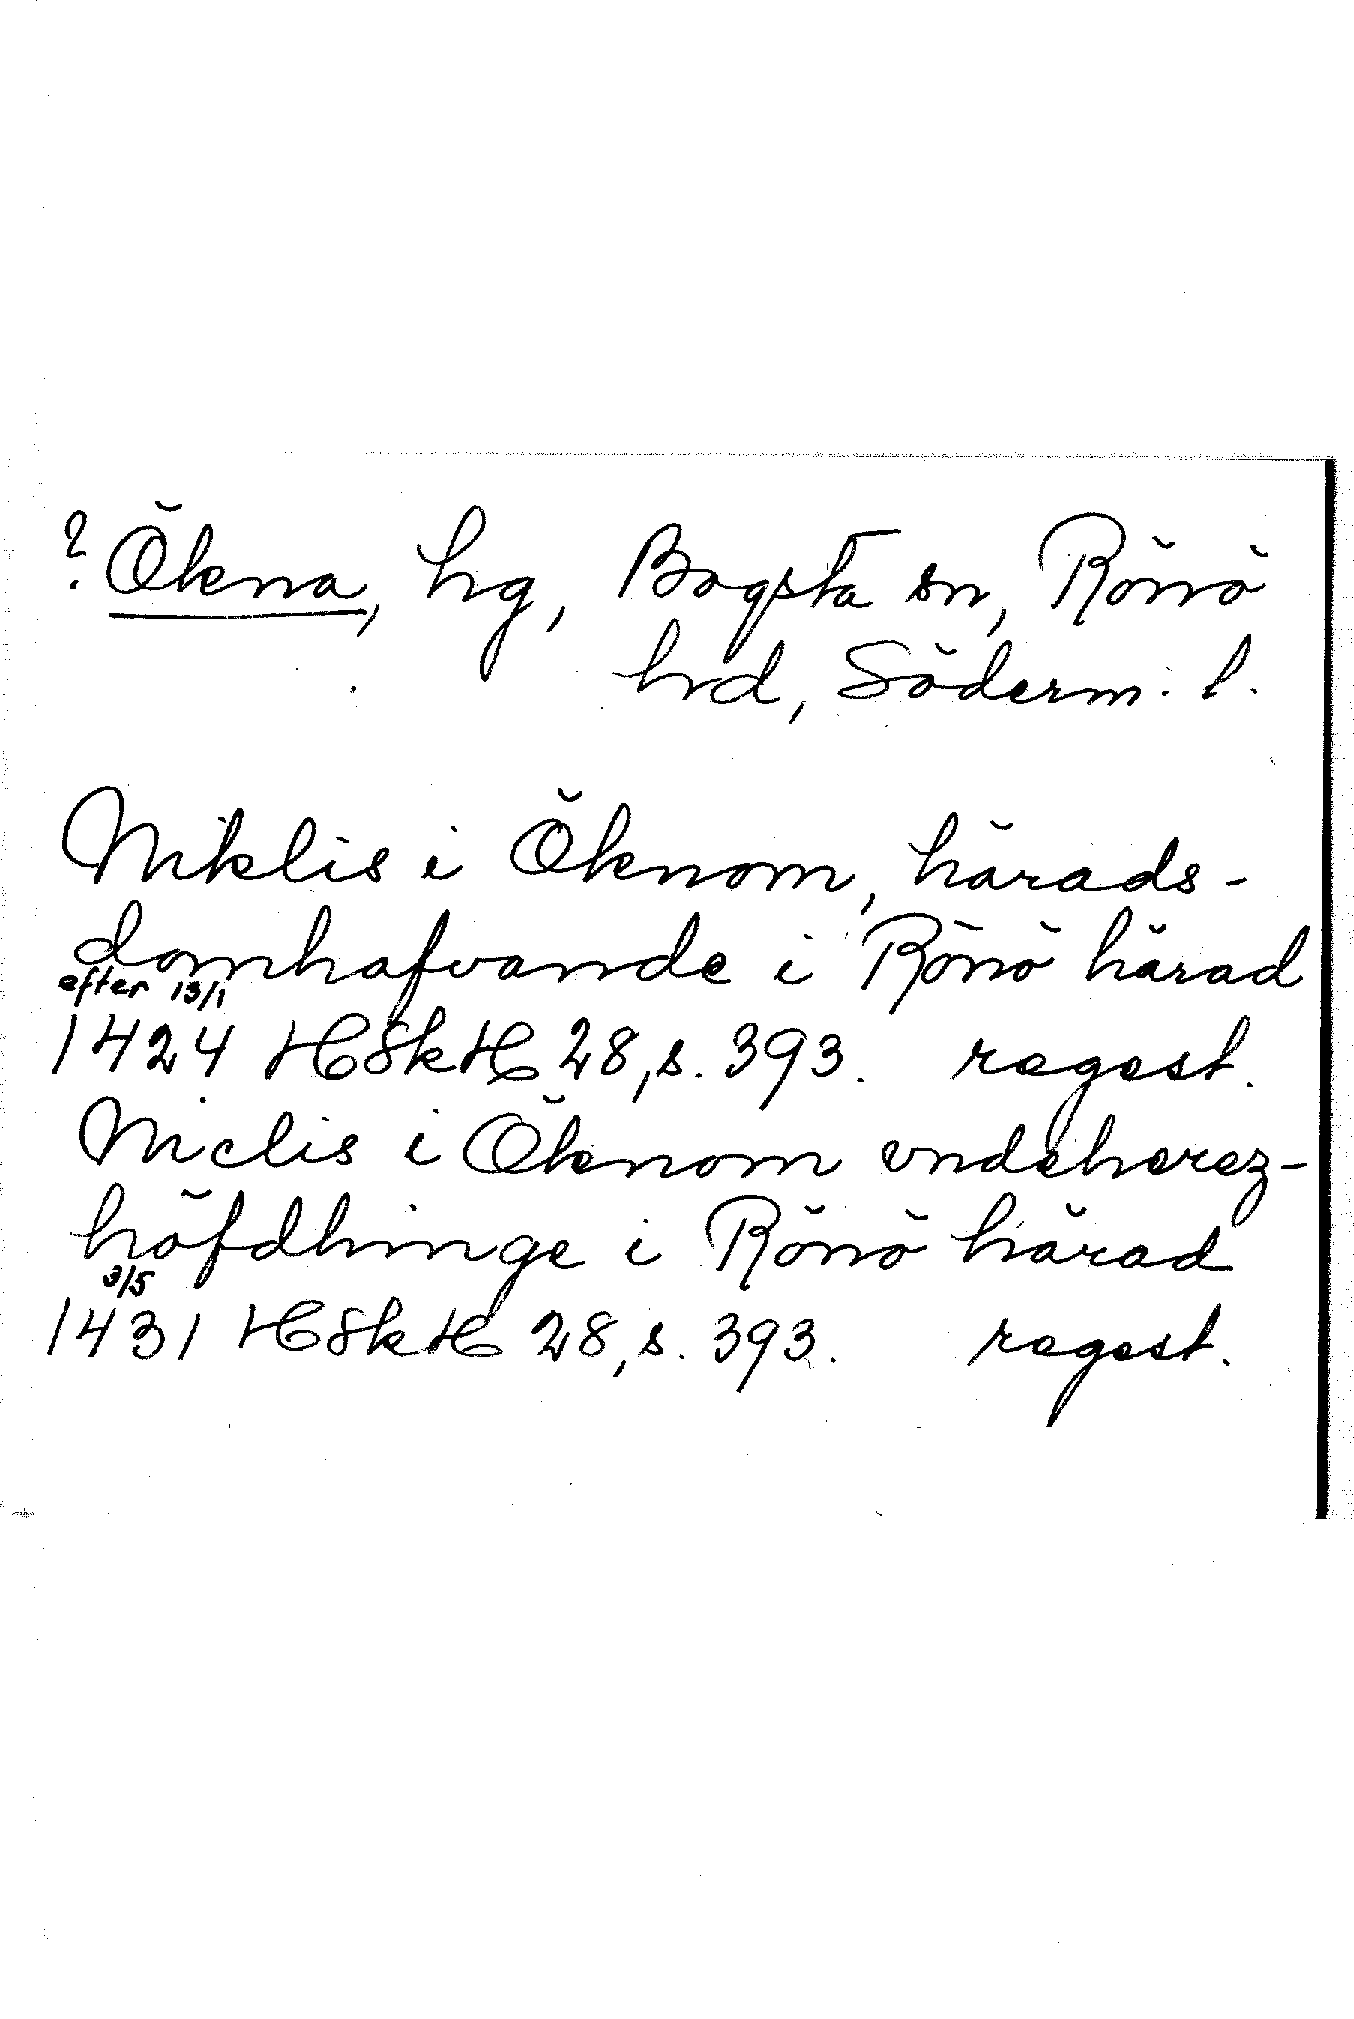 ? Ökna, hg, Bogsta sn, Rönö
hrd, Söderm. l.
Niklis i Öknom, härads-
domhafvande i Rönö härad
efter 13/1
1424 HSkH 28, s. 393. regest.
Niclis i Öknom vndeherez-
höfdhinge i Rönö härad
3/5
1431 HSkH 28, s. 393. regest.